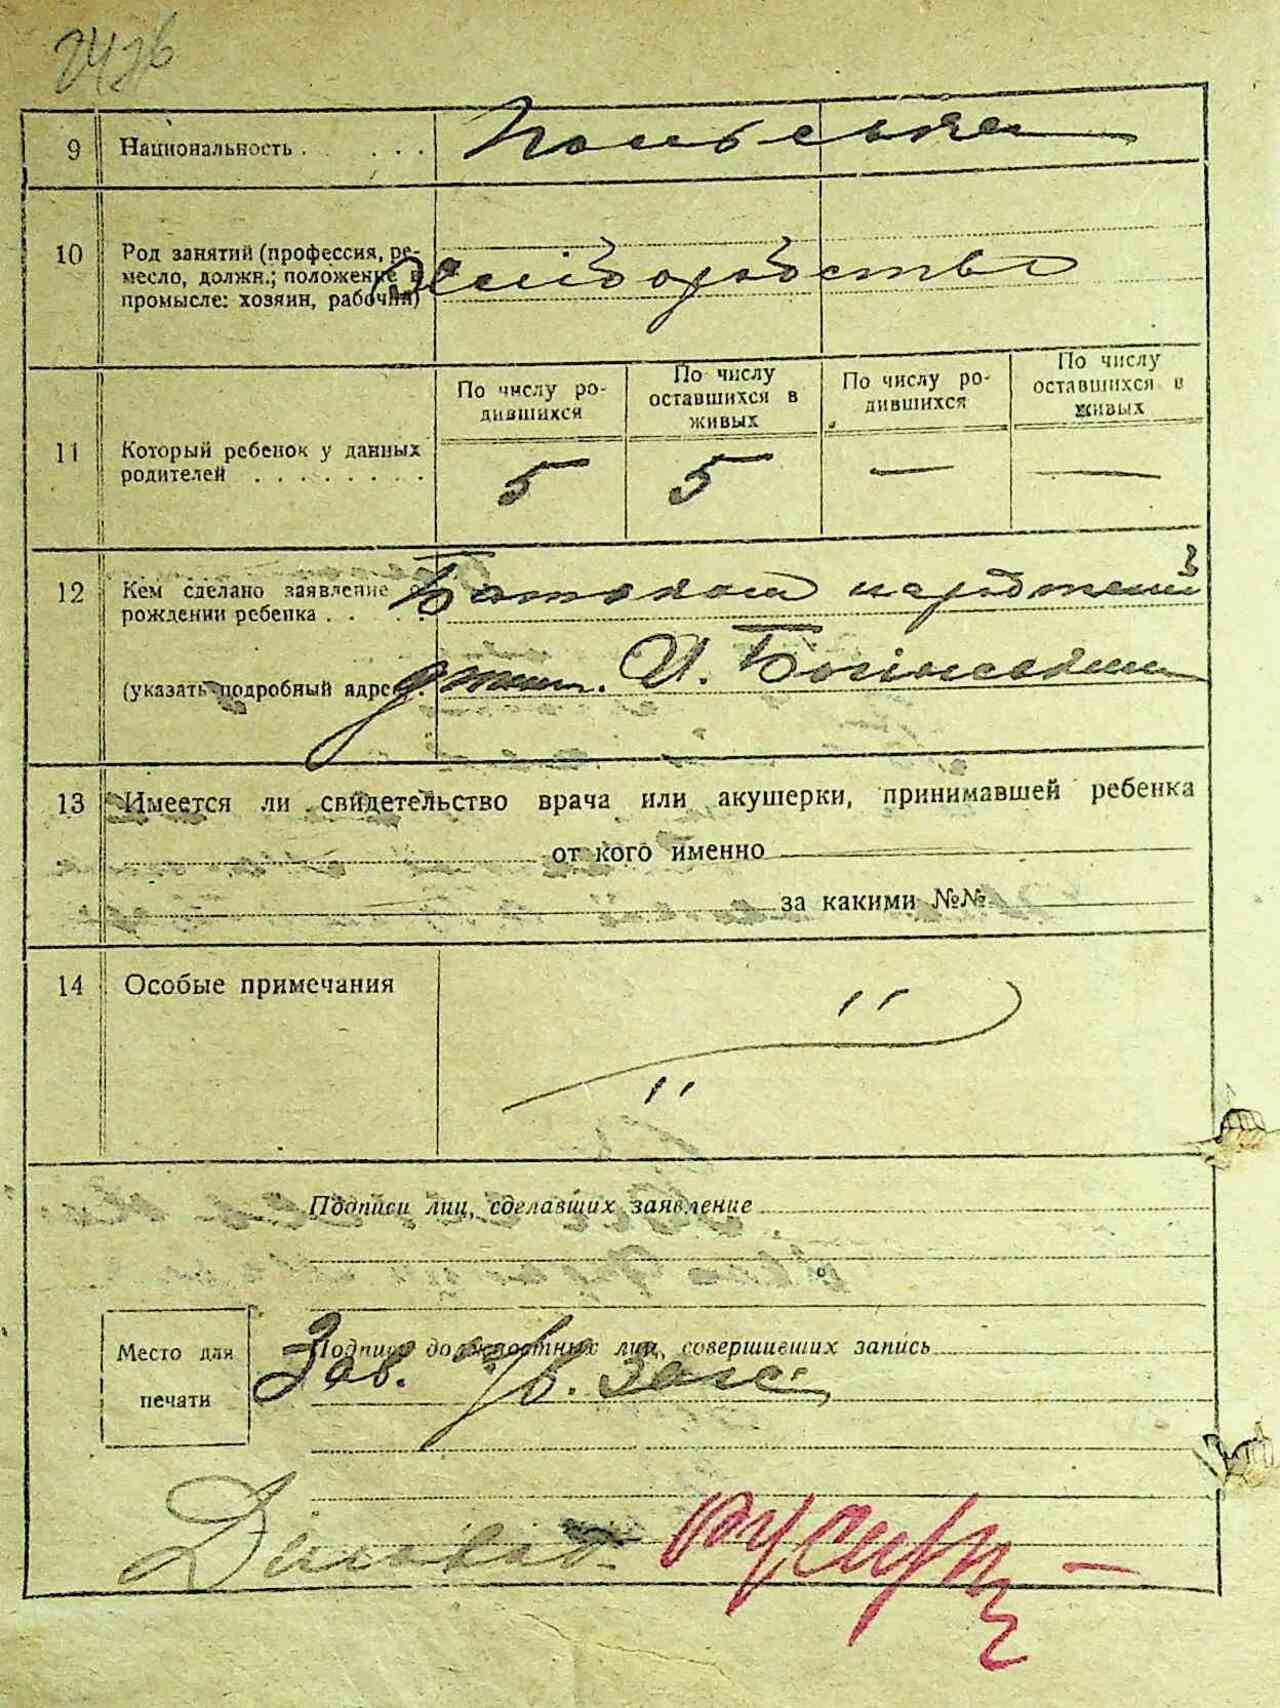 9 Национальность . . . . . Польська
10 Род занятий (профессия, ре-
месло, должн.; положение в
промысле: хозяин, рабочий)
По числу ро-
дившихся
По числу
оставшихся в
живых
По числу ро-
дившихся
По числу
оставшихся в
живых
11 Который ребенок у данных
родителей . . . . . . . .
5 5 — —
12 Кем сделано заявление
рождении ребенка . . . .
Батьком
(указать подробный адрес.
13 Имеется ли свидетельство врача или акушерки, принимавшей ребенка
от кого именно
за какими №№
14 Особые примечания
Подписи лиц, сделавших заявление
Место для
печати
Подписи должностных лиц, совершивших запись
Зав.